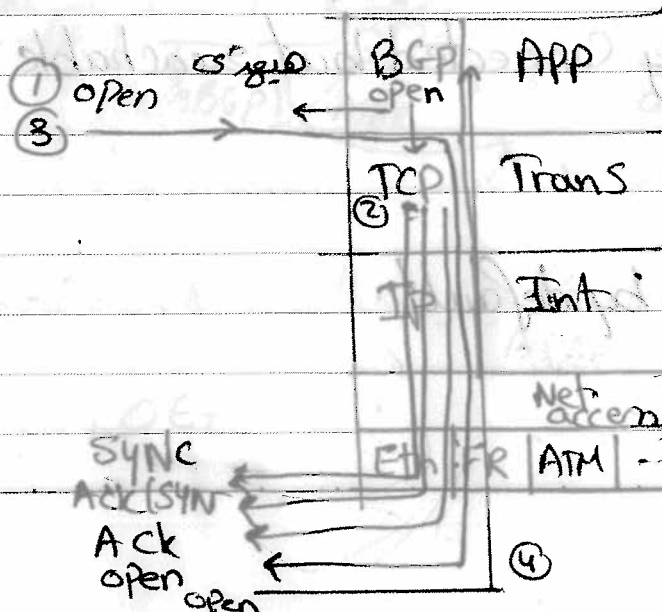 ① open BGP App
open
③
TCP Trans
②
IP Int
Net
access
SYNC Eth FR ATM --
ACK(SYN
Ack
open ④
open